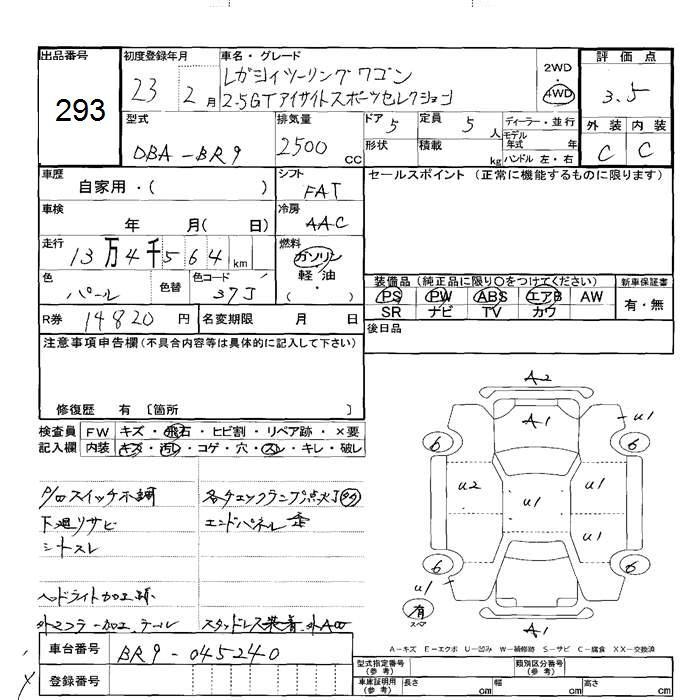 出品番号 初度登録年月 車名・グレード 評価点
293 23 2月 レガシィツーリングワゴン
2.5GTアイサイトスポーツセレクション
2WD
4WD
3.5
型式 排気量 ドア 5 定員 5人 ディーラー・並行 外装 内装
DBA-BR9 2500cc 形状 積載 kg モデル年式 年 ハンドル 左・右 C C
車歴 シフト セールスポイント (正常に機能するものに限ります)
自家用・( ) FAT
車検 冷房
年 月( 日) AAC
走行 燃料
13万4千564km ガソリン
軽油
( )
色 色替 色コード 装備品(純正品に限り〇をつけてください) 新車保証書
パール 37J PS PW ABS エアB AW 有・無
SR ナビ TV カワ
R券 14820円 名変期限 月 日 後日品
注意事項申告欄(不具合内容等は具体的に記入して下さい)
修復歴 有 〔箇所 〕
検査員 FW キズ・飛石・ヒビ割・リペア跡・×要
記入欄 内装 キズ・汚レ・コゲ・穴・スレ・キレ・破レ
P/Wスイッチ不調 各チェックランプ点火丁
下廻リサビ エンドパネル歪
シートスレ
スタッドレス装着
A2
A1
u1
6
6
u2
u1
u1
6
6
u1
有
スペア
A1
A-キズ E-エクボ U-凹み W-補修跡 S-サビ C-腐食 XX-交換済
車台番号 BR9-045240
登録番号
型式指定番号(参考) 類別区分番号(参考)
車庫証明用(参考) 長さ cm 幅 cm 高さ cm